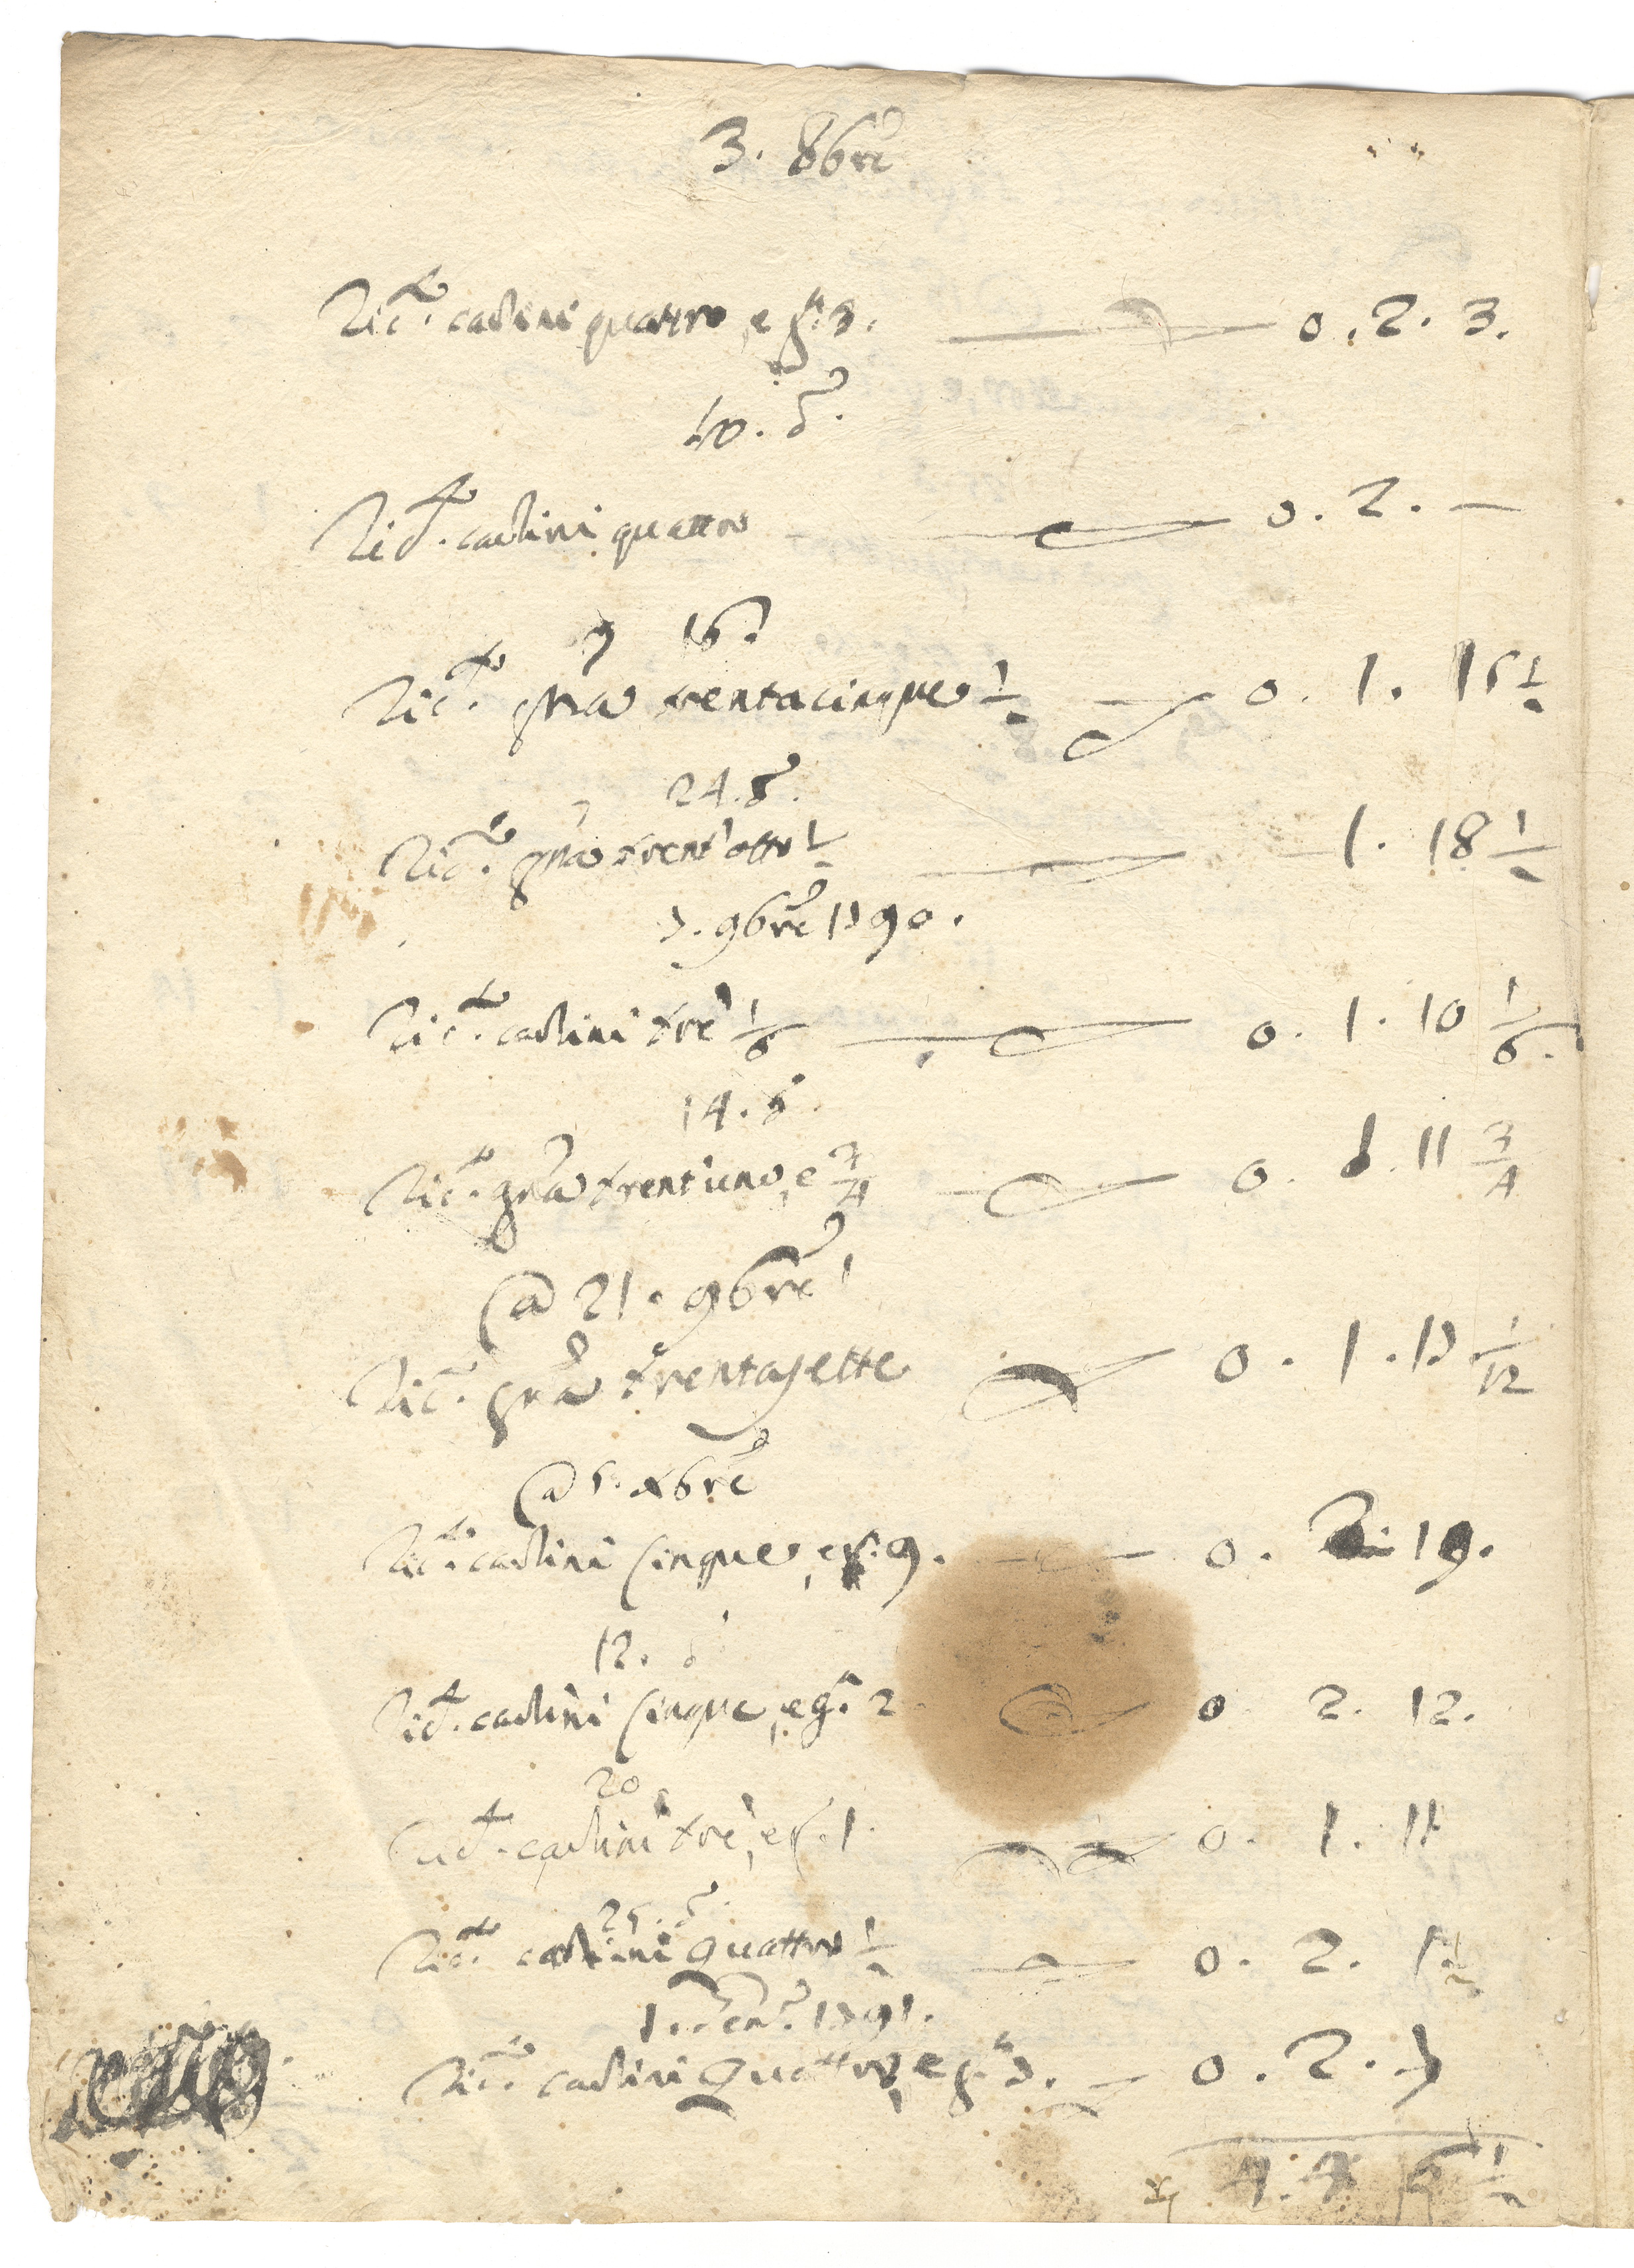 3. 8bre
Ric.to carlini quattro, e g.a 3. 0. 2. 3.
10. d.o
Ric.to carlini quattro 0. 2. —
16.
Ric.to grña trentacinque 1/2 0. 1. 15 1/2
24. d.o
Ric.to grña trent'otto 1/2 1. 18 1/2
7. 9bre 1790.
Ric.to carlini tre 1/6 0. 1. 10 1/6.
14. d.o
Ric.to grña trent'uno, e 3/4 0. 1. 11 3/4
@ 21. 9bre
Ric.to grña trentasette 0. 1. 17 1/12
@ 5. Xbre
Ric.to carlini cinque, e g. 9. 0. 2. 19.
12. d.o
Ric.to carlini cinque, e g.a 2 0 2. 12.
20
Ric.to carlini tre, e g. 1. 0. 1. 11
25. d.o
Ric.to carlini quattro 1/2 0. 2. 1/2
1. Gen.o 1791.
Ric.to carlini quattro, e g.a 7. 0. 2. 7